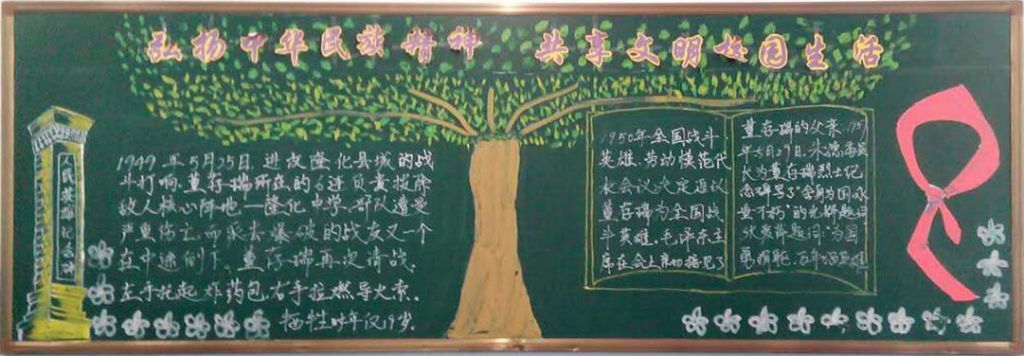 弘扬中华民族精神 共享文明校园生活
人民英雄纪念碑
1949年5月25日,进攻隆化县城的战
斗打响,董存瑞所在的6连负责拔除
敌人核心阵地—隆化中学,部队遭受
严重伤亡,而派去爆破的战友又一个
在中途倒下,董存瑞再次请战,
左手托起炸药包,右手拉燃导火索.
牺牲时年仅19岁.
1950年全国战斗
英雄、劳动模范代
表会议决定追认
董存瑞为全国战
斗英雄.毛泽东主
席在会上亲切接见了
董存瑞的父亲.1957
年5月29日,朱德
长为董存瑞烈士纪
念碑写了"舍身为国,永
垂不朽"的光辉题词